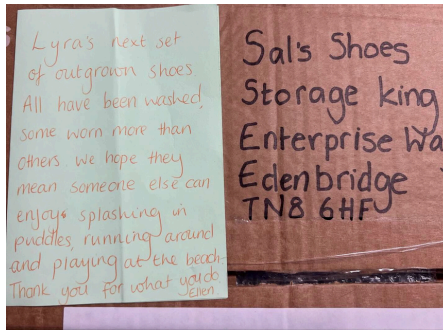 Lyra's next set
of outgrown shoes.
All have been washed,
some worn more than
others. We hope they
mean someone else can
enjoys splashing in
puddles, running around
and playing at the beach.
Thank you for what you do
Ellen
Sal's Shoes
Storage King
Enterprise Wa
Edenbridge
TN8 6HF